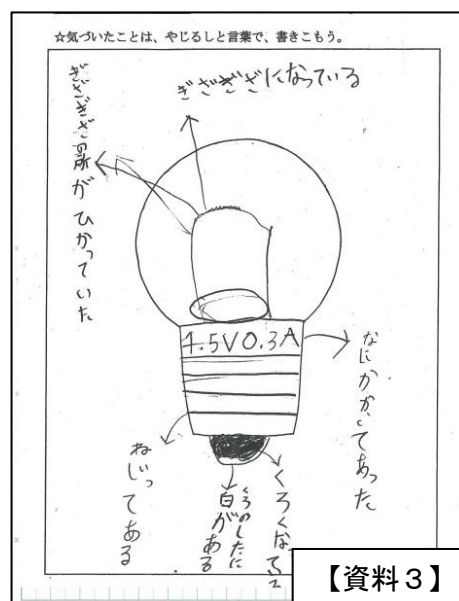 ☆気づいたことは、やじるしと言葉で、書きこもう。
ぎざぎざになっている
ぎざぎざ
がひかっていた
1.5V0.3A
なにかかいてあった
ねじってある
くろのしたに
白がある
くろくなって
【資料３】